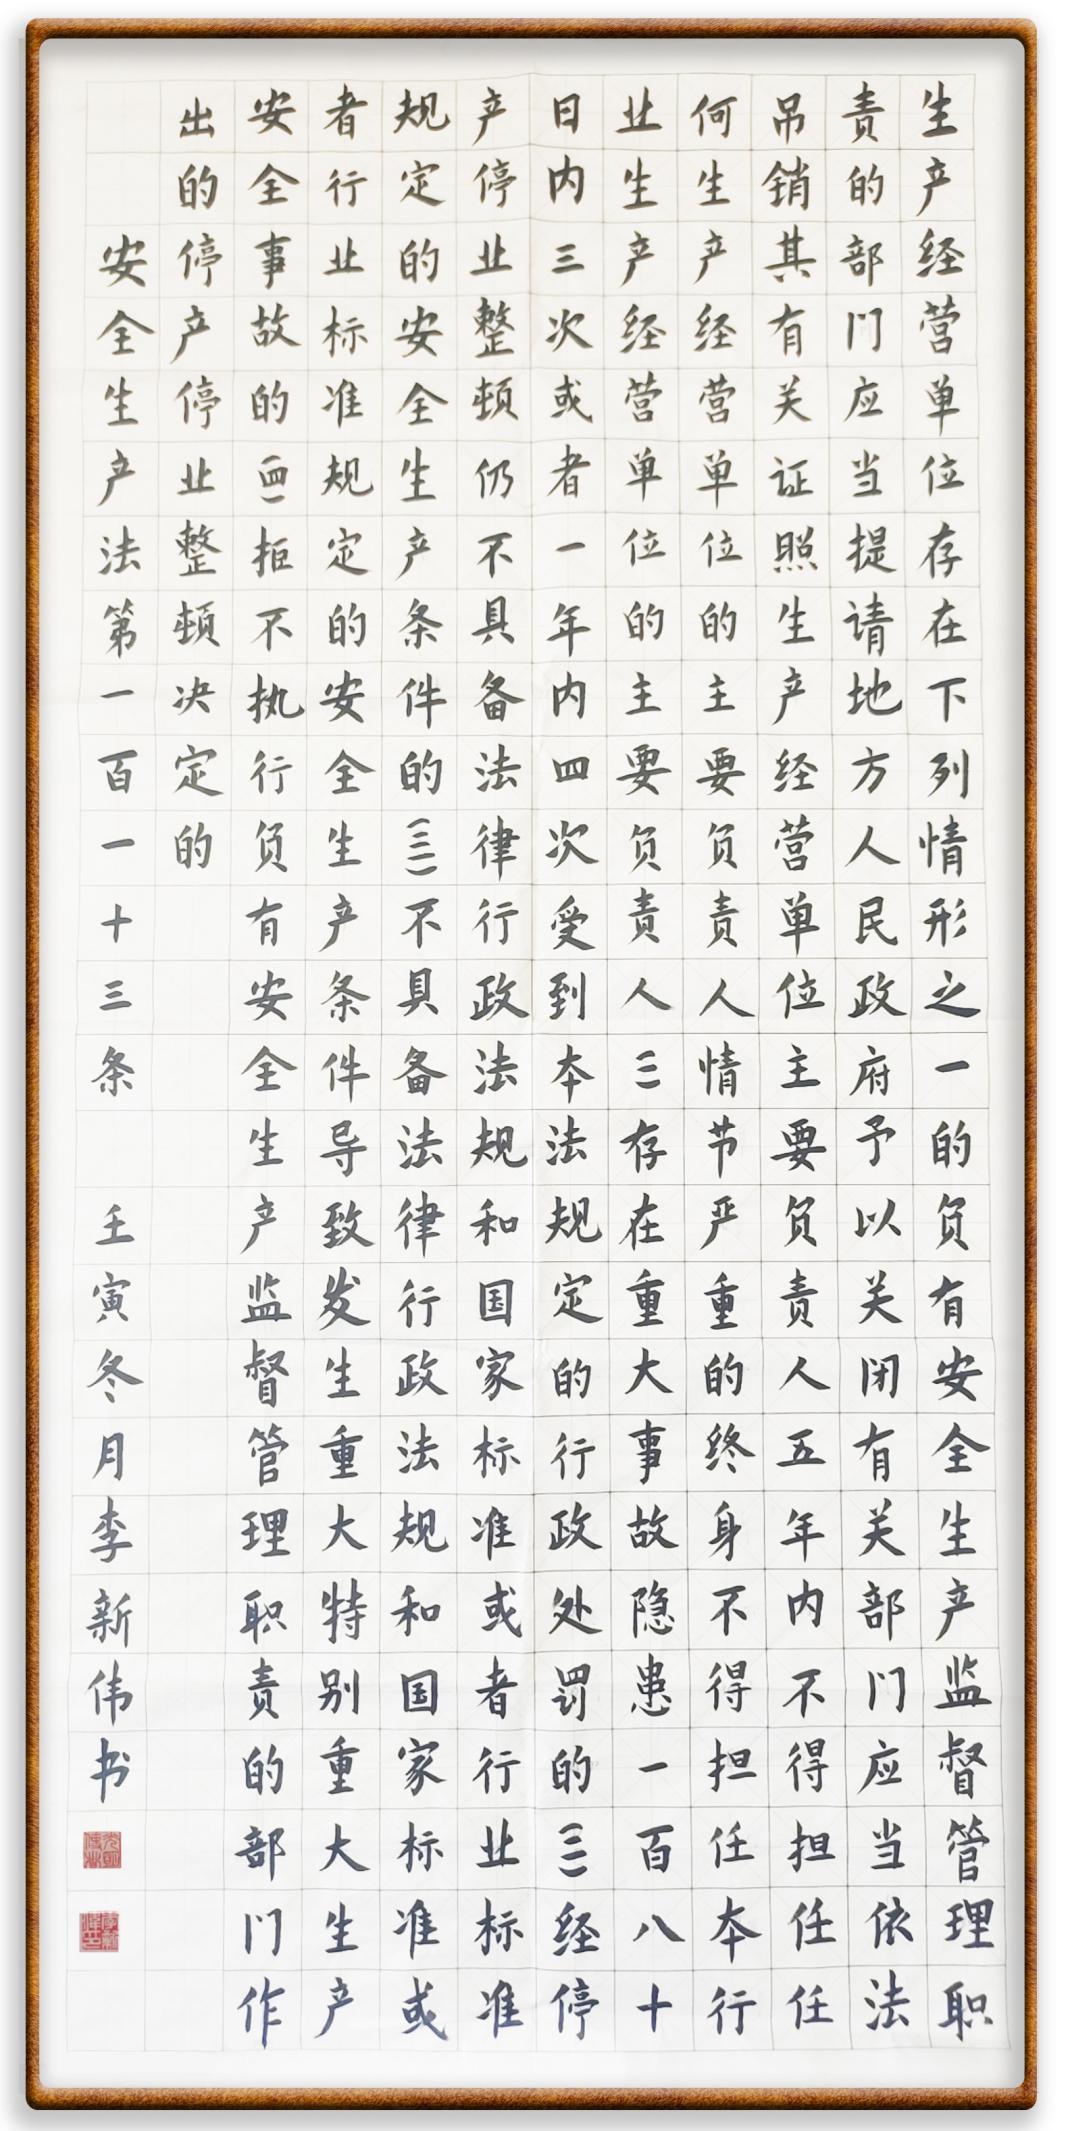 生产经营单位存在下列情形之一的负有安全生产监督管理职
责的部门应当提请地方人民政府予以关闭有关部门应当依法
吊销其有关证照生产经营单位主要负责人五年内不得担任任
何生产经营单位的主要负责人情节严重的终身不得担任本行
业生产经营单位的主要负责人(一)存在重大事故隐患一百八十
日内三次或者一年内四次受到本法规定的行政处罚的(二)经停
产停业整顿仍不具备法律行政法规和国家标准或者行业标准
规定的安全生产条件的(三)不具备法律行政法规和国家标准或
者行业标准规定的安全生产条件导致发生重大特别重大生产
安全事故的(四)拒不执行负有安全生产监督管理职责的部门作
出的停产停业整顿决定的
安全生产法第一百一十三条 壬寅冬月李新伟书